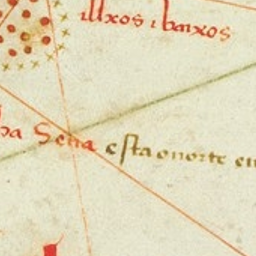 illxos i baixos
ha Sena esta o norte en